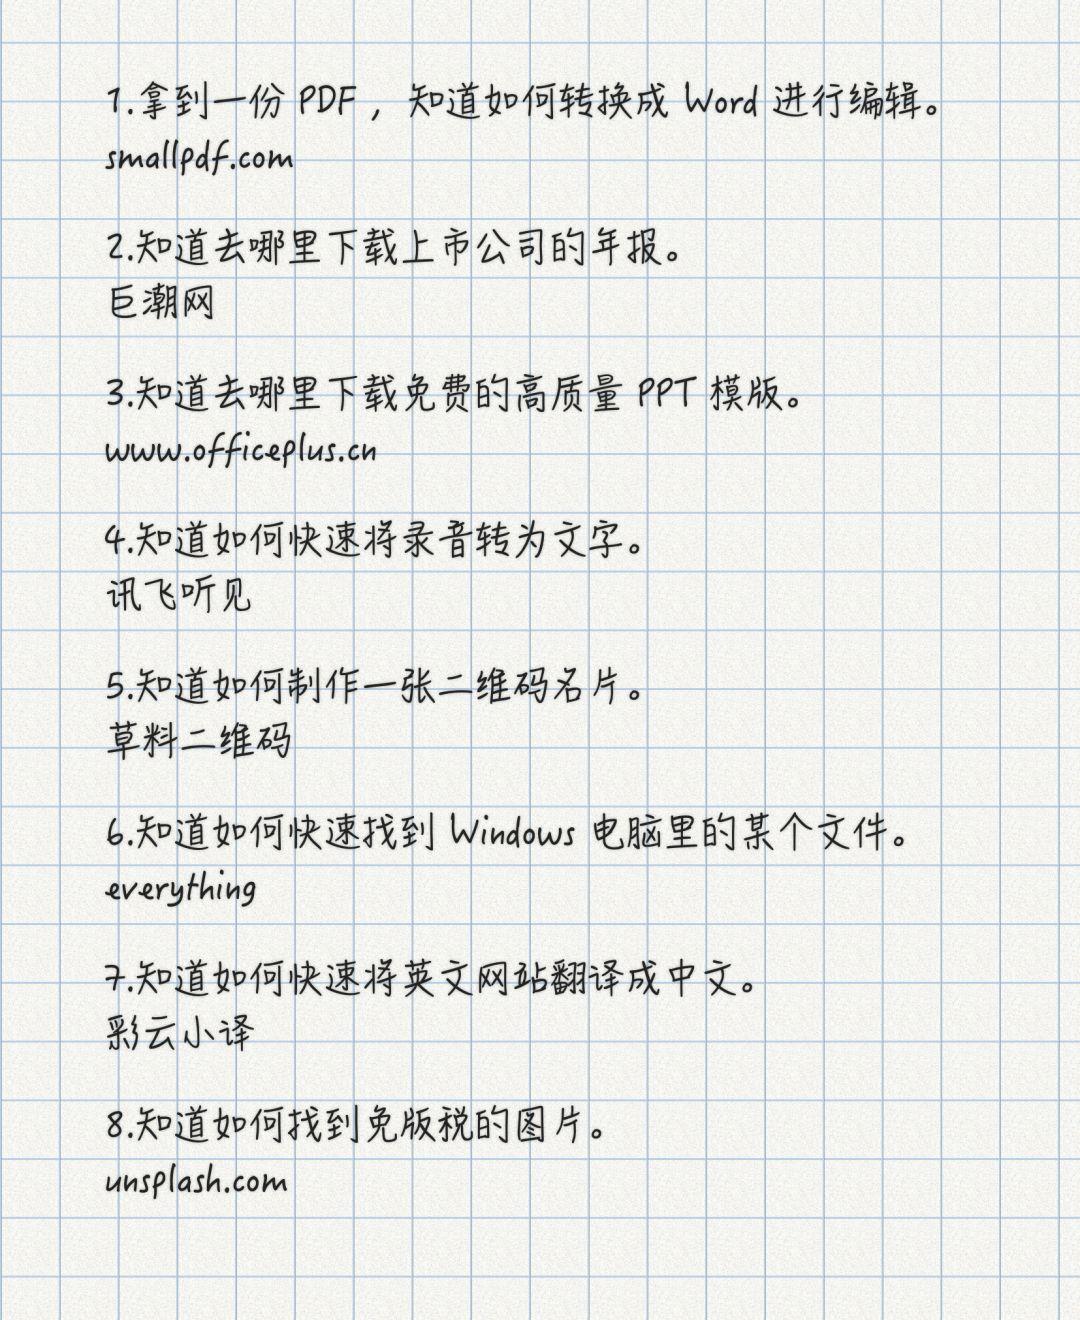 1.拿到一份 PDF ，知道如何转换成 Word 进行编辑。
smallpdf.com
2.知道去哪里下载上市公司的年报。
巨潮网
3.知道去哪里下载免费的高质量 PPT 模版。
www.officeplus.cn
4.知道如何快速将录音转为文字。
讯飞听见
5.知道如何制作一张二维码名片。
草料二维码
6.知道如何快速找到 Windows 电脑里的某个文件。
everything
7.知道如何快速将英文网站翻译成中文。
彩云小译
8.知道如何找到免版税的图片。
unsplash.com